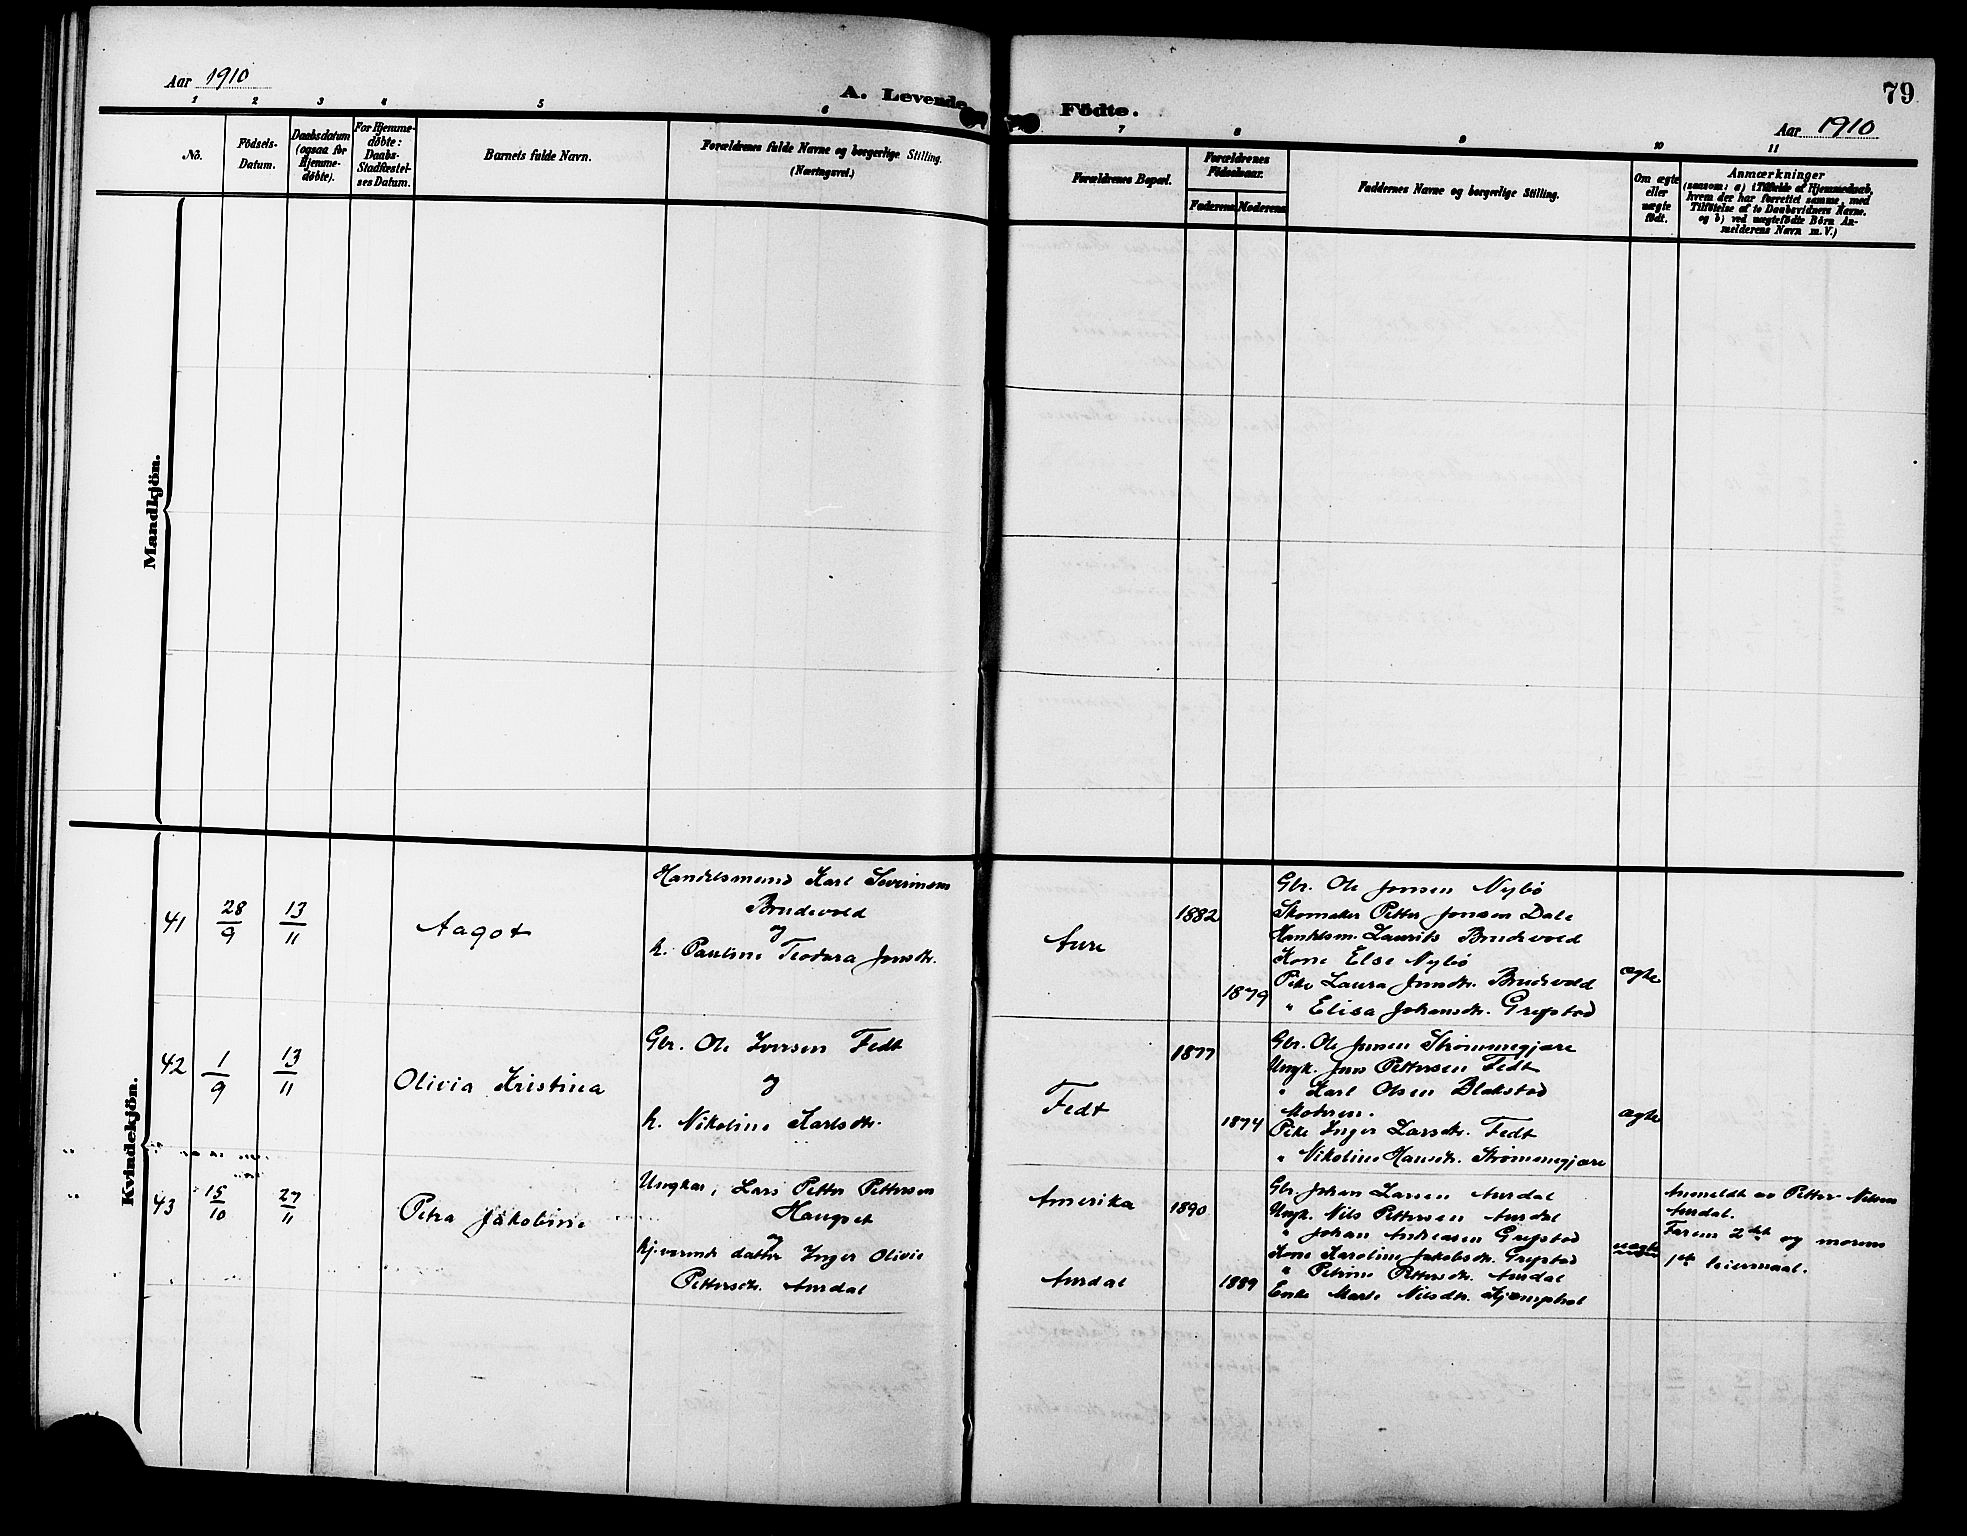 Aar 1910
A. Levende Födte.
79
Aar 1910
1 2 3 4 5 6 7 8 9 10 11
No.
Födsels-
Datum.
Daabsdatum
(ogsaa for
Hjemme-
døbte).
For Hjemme-
døbte:
Daabs-
Stadfæstel-
ses Datum.
Barnets fulde Navn.
Forældrenes fulde Navne og borgerlige Stilling.
(Næringsvei.)
Forældrenes Bopæl.
Forældrenes
Fødselsaar.
Faderens
Moderens
Faddernes Navne og borgerlige Stilling.
Om ægte
eller
uægte
født.
Anmærkninger
(saasom: a) i Tilfælde af Hjemmedaab,
hvem der har forrettet samme, med
Tilføielse af to Daabsvidners Navne.
og b) ved uægtefødte Børn An-
melderens Navn m. V.)
Mandkjön.
Kvindekjön.
41
28/9
13/11
Aagot
Handelsmand Karl Severinsen
Brudevold
og
h. Pauline Teodora Jonsdtr.
Aure
1882
1879
Gbr. Ole Jonsen Nybø
Skomaker Petter Jonsen Dale
Handelsm. Laurits Brudevold
Kone Else Nybø
Pike Laura Jonsdtr. Brudevold
" Elisa Johansdtr. Grepstad
ægte
42
1/9
13/11
Olivia Kristina
Gbr. Ole Iversen Fedt
og
h. Nikoline Karlsdtr.
Fedt
1877
1874
Gbr. Ole Jensen Strømmegjære
Ungk. Jens Pettersen Fedt
" Karl Olsen Blakstad
Moderen.
Pike Inger Larsdtr. Fedt
" Nikoline Hansdtr. Strømmegjære
ægte
43
15/10
27/11
Petra Jakobine
Ungkar, Lars Petter Pettersen
Haugset
og
hj.værende datter Inger Olivie
Pettersdtr. Aurdal
Amerika
Aurdal
1890
1889
Gbr. Johan Larsen Aurdal
Ungk. Nils Pettersen Aurdal
" Johan Andreasen Grepstad
Kone Karoline Jakobsdtr. Grepstad
" Petrine Pettersdtr. Aurdal
Enke Marte Nilsdtr.
uægte
Anmeldt av Petter Nilsen
Aurdal.
Faren 2det og morens
1ste leiermaal.